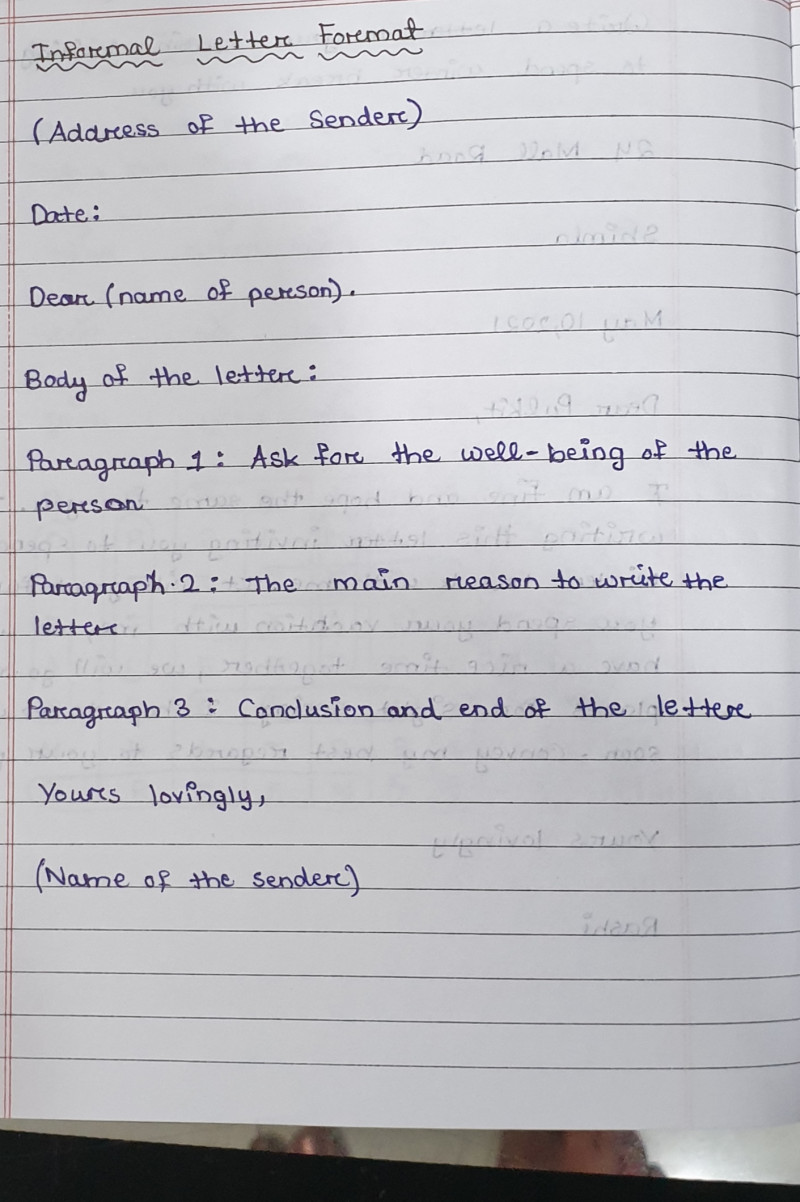 Informal Letter Format
(Address of the Sender)
Date:
Dear (name of person).
Body of the letter:
Paragraph 1: Ask for the well-being of the
person
Paragraph 2: The main reason to write the
letter
Paragraph 3: Conclusion and end of the letter
Yours lovingly,
(Name of the sender)